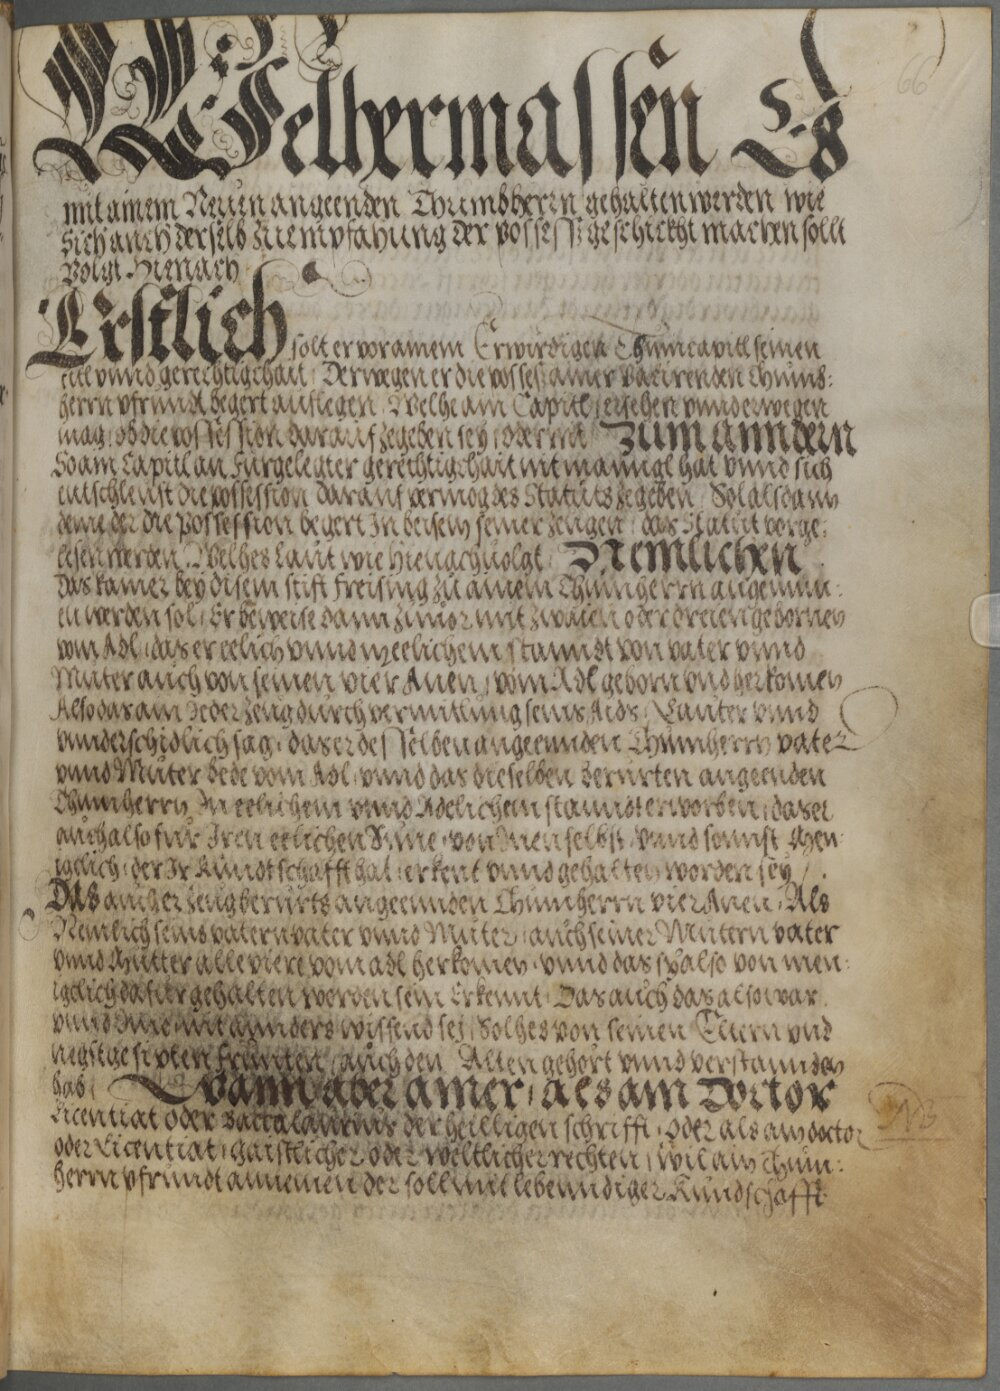 66
Welhermassen Es
mit ainem Neuen angeenden Thumbherrn gehalten werden wie
Sich auch derselb zu empfahung der possess geschickht machen soll
Volgt Hienach
Erstlich solt er vor ainem Erwirdigen Thumcapitl seinen
titl vnnd gerechtigchait, Derwegen er die possess ainer vacirenden Thumb:
herrn pfrundt begert auflegen, Welhe ain Capitl ersehen vnnd erwegen
mag, ob die possession darauf zegeben sey, oder nit Zum anndern
So ain Capitl an Furgelegter gerechtigchait nit manngl hat vnnd sich
entschleust die possession darauf vermög des Statuts zegeben, Sol alsdann
deme der die Possession begert In beisein seiner zeugen, das Statut vorge:
lesen werden, Welhes laut wie Hienachuolgt, Nemlichen
Das kainer bey disem stift Freising zu ainem Thumherrn angenum:
en werden sol, Er beweise dann zuuor mit zwaien oder dreien gebornen
vom Adl, das er eelich vnnd in eelichem stanndt von vater vnnd
Muter auch von seinen vier Anen, vom Adl geborn vnd herkomen
Also das ain Jeder zeug durch vermittlung seins Aids, Lauter vnnd
vnnderschidlich sag, das er desselben angeennden Thumherrn vater
vnnd Muter bede vom Adl, vnnd das dieselben berurten angeenden
Thumherrn In eelichem vnnd Adelichem stanndt erworben, das er
auch also fur Iren eelichen Sune, von Inen selbst, vnnd sonnst Men:
igelich, der Ir Kundtschafft hat, erkent vnnd gehalten worden sey /.
Das auch er zeug berurts angeennden Thumherrn vier Anen, Als
Nemlich seins vatern vater vnnd Muter, auch seiner Mutern vater
vnnd Mutter alle viere vom adl herkomen, vnnd das sy also von men:
igelich dafur gehalten worden sein Erkennt, Das auch das also war
vnnd Ime nit annders wissend sej, Solhes von seinen Eltern vnd
negst gesipten freunten, auch den Alten gehört vnnd verstannden
hab, Wann aber ainer, als ain Doctor
Licentiat oder Baccalaureus der heiligen schrifft, oder als ain doctor
oder Licentiat, gaistlicher oder weltlicher rechten, wil ain Thum:
herrn pfrundt annemen der soll mit lebenndiger Kundschafft
NB